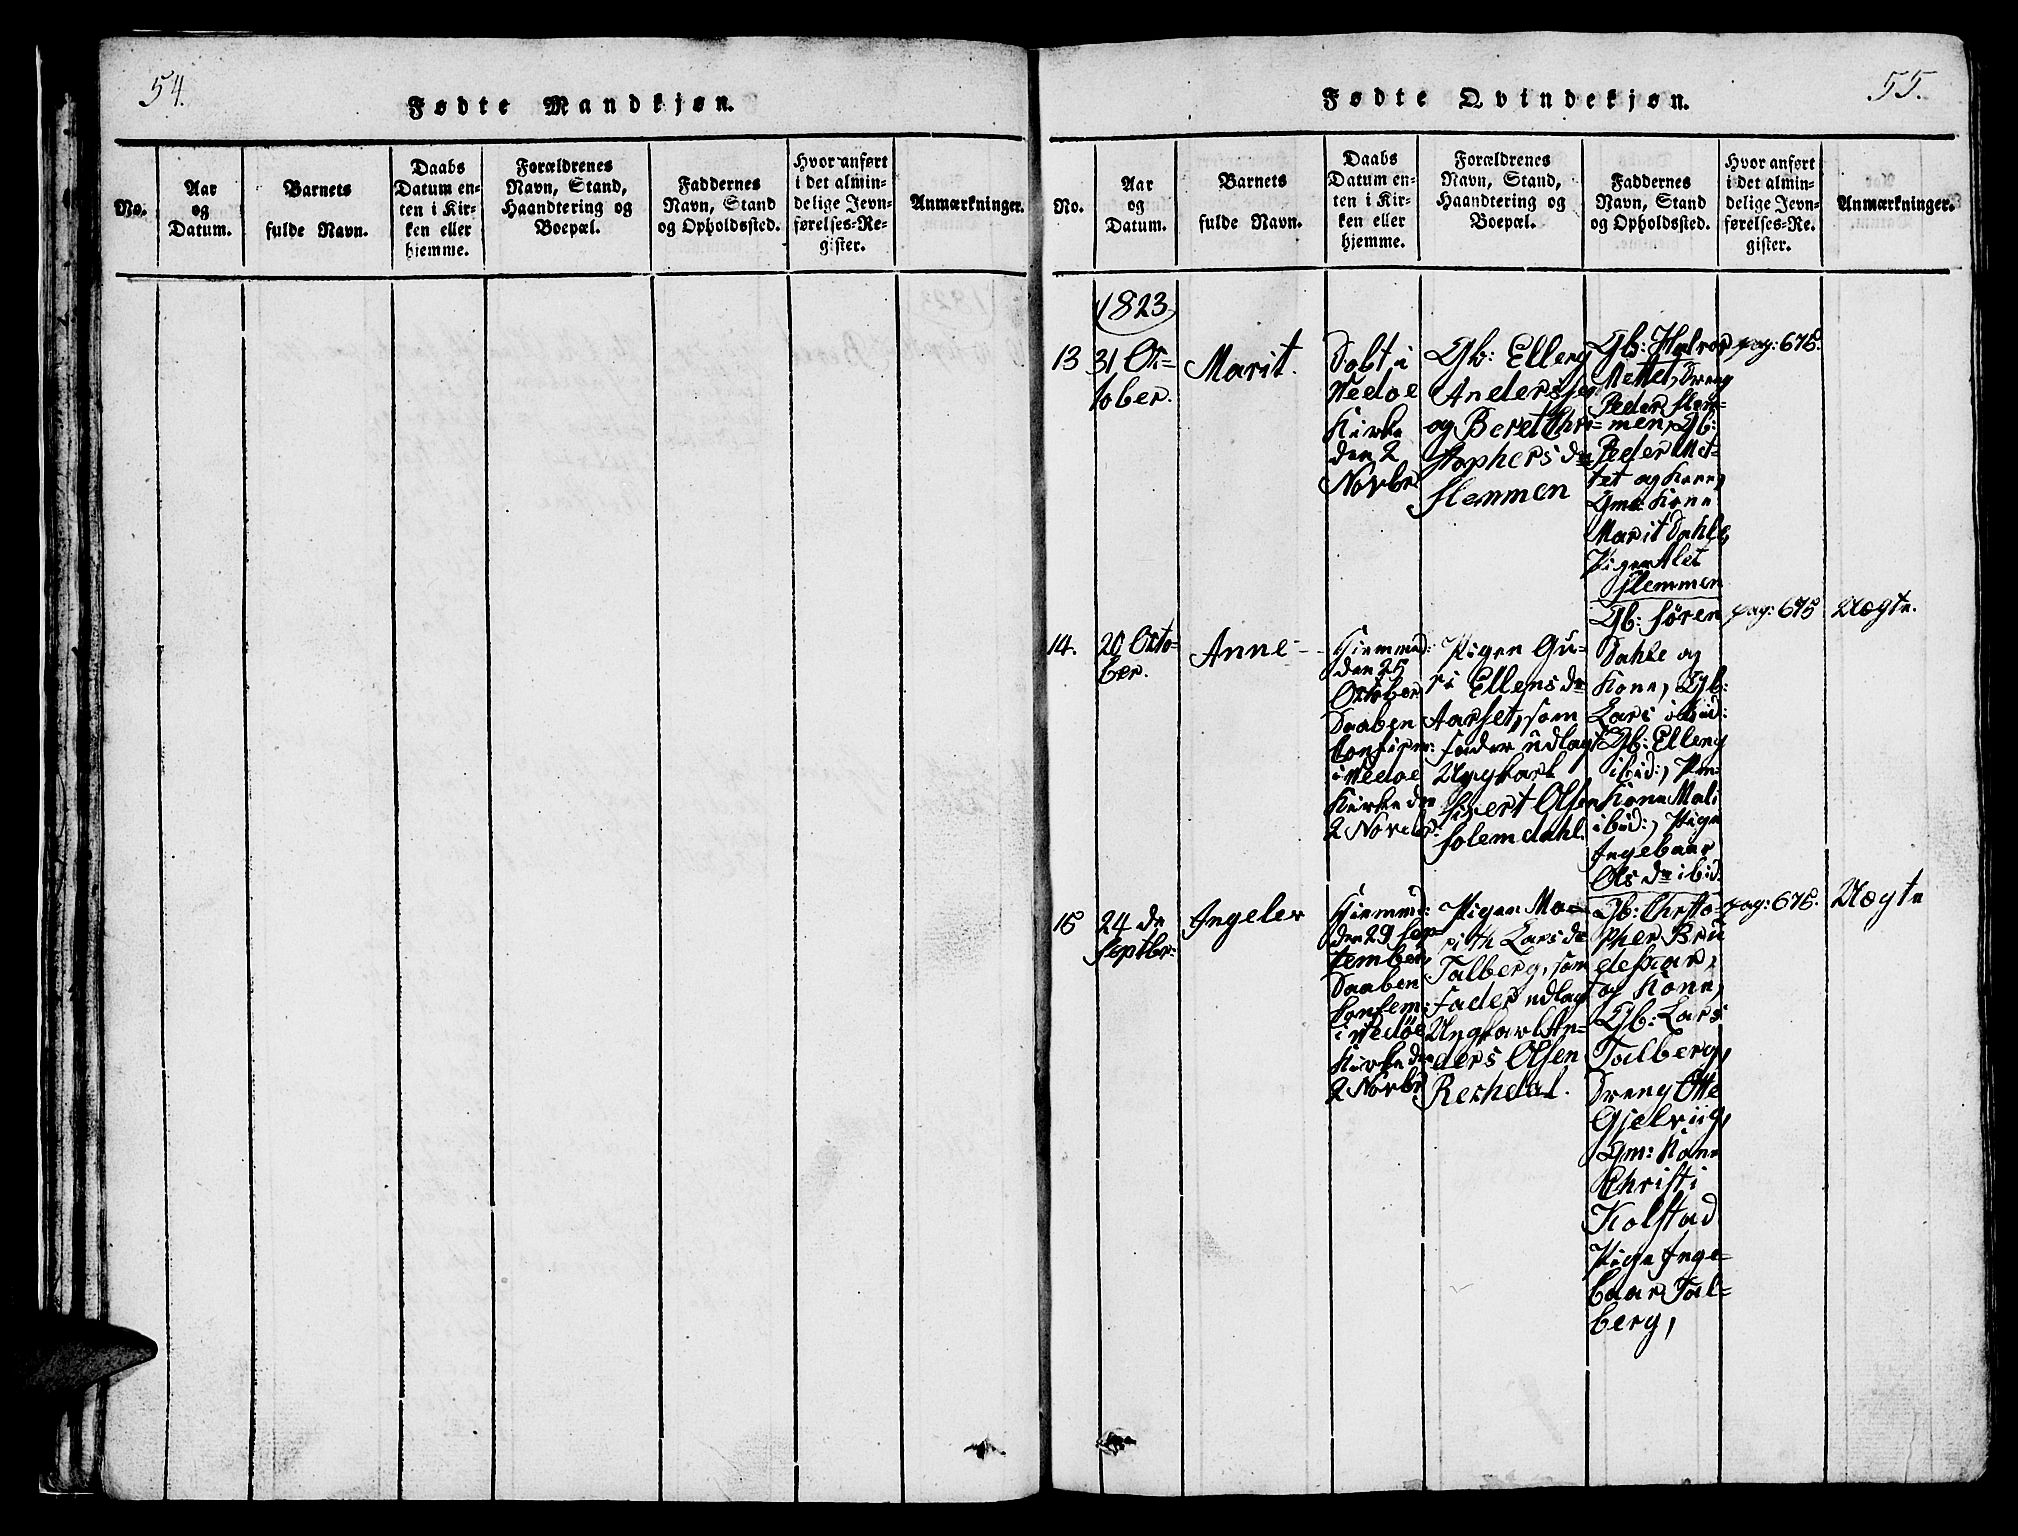 54.
Fødte Mandkjøn.
No.
Aar
og
Datum.
Barnets
fulde Navn.
Daabs
Datum en-
ten i Kir-
ken eller
hjemme.
Forældrenes
Navn, Stand,
Haandtering og
Boepæl.
Faddernes
Navn, Stand
og Opholdssted.
Hvor anført
i det almin-
delige Jevn-
førelses-Re-
gister.
Anmærkninger.
55.
Fødte Qvindekjøn.
No.
Aar
og
Datum.
Barnets
fulde Navn.
Daabs
Datum en-
ten i Kir-
ken eller
hjemme.
Forældrenes
Navn, Stand,
Haandtering og
Boepæl.
Faddernes
Navn, Stand
og Opholdssted.
Hvor anført
i det almin-
delige Jevn-
førelses-Re-
gister.
Anmærkninger.
1823
13
31 Oc-
tober.
Marit.
Dobt i
Vedøe
Kirke
den 2
Novbr
Gb: Elleng
Anders
og Beret Chri-
stophers dr
Flemmen
Gb: Halvor
Mettet, Dreng
Peder Flem-
men, Gb:
Peder Met-
tet og Kone,
Gm: Kone
Marit Dahle,
Pigen Alet
Flemmen
pag: 675.
14.
20 Octo-
ber.
Anne
Hiemmed:
den 25
October
Daaben
Confirm:
i Vedøe
Kirke den
2 Novebr:
Pigen Gu-
ri Ellens dr
Aarset, som
Fader udlagt
Ungkarl
Sivert Olsen
Solemdahl
Gb: Søren
Dahle og
Kone, Gb:
Lars ibid:
Gb: Elleng
ibid:,
Kone Mali
ibid:, Pige
Ingebaar
Ols dr ibid.
pag: 675
Uægte.
15
24 de
Septbr:
Ingeler
Hiemmed:
den 29 Sep-
tember,
Daaben
i Vedöe
Kirke den
2 Novbr
Pigen Ma-
rith Lars dr
Talberg, som
Fader udlagt
Ungkarl An-
ders Olsen
Reshdal.
Gb: Christo-
pher Bru
og Kone,
Gb: Lars
Talberg,
Dreng Otte
Gjelviig,
Gm: Kone
Christi
Kolstad
Pige Inge-
baar Tal-
berg,
pag: 675.
Uægte